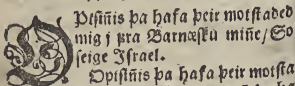 OPtsiñis þa hafa þeir motstaded
mig j fra Barnæsku miñe/ So
seige Jsrael.
Optsiñis þa hafa þeir motsta